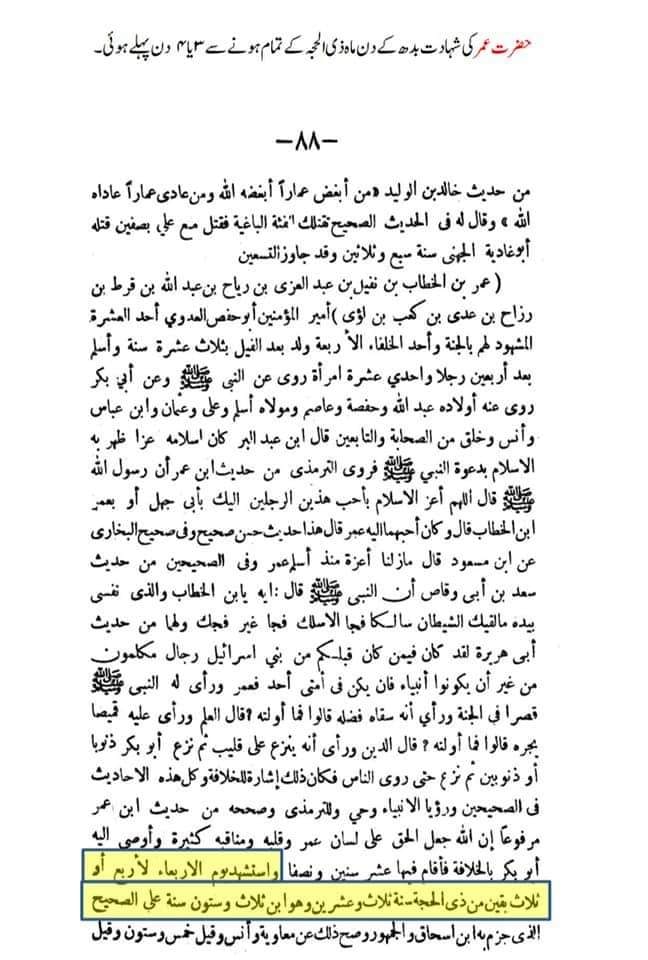 حضرت عمر کی شہادت بدھ کے دن ماہ ذی الحجہ کے تمام ہونے سے ۳ یا ۴ دن پہلے ہوئی۔
—٨٨—
من حديث خالد بن الوليد «من أبغض عماراً أبغضه الله ومن عادى عماراً عاداه
الله» وقال له فى الحديث الصحيح تقتلك الفئة الباغية فقتل مع علي بصفين قتله
أبو غادية الجهنى سنة سبع وثلاثين وقد جاوز التسعين
(عمر بن الخطاب بن نفيل بن عبد العزى بن رياح بن عبد الله بن قرط بن
رزاح بن عدى بن كعب بن لؤى) أمير المؤمنين أبو حفص العدوي أحد العشرة
المشهود لهم بالجنة وأحد الخلفاء الأربعة ولد بعد الفيل بثلاث عشرة سنة وأسلم
بعد أربعين رجلا واحدي عشرة امرأة روى عن النبي ﷺ وعن أبي بكر
روى عنه أولاده عبد الله وحفصة وعاصم ومولاه أسلم وعلى وعثمان وابن عباس
وأنس وخلق من الصحابة والتابعين قال ابن عبد البر كان اسلامه عزا ظهر به
الاسلام بدعوة النبي ﷺ فروى الترمذى من حديث ابن عمر أن رسول الله
ﷺ قال اللهم أعز الاسلام بأحب هذين الرجلين اليك بأبى جهل أو بعمر
ابن الخطاب قال وكان أحبهما اليه عمر قال هذا حديث حسن صحيح وفى صحيح البخارى
عن ابن مسعود قال مازلنا أعزة منذ أسلم عمر وفى الصحيحين من حديث
سعد بن أبى وقاص أن النبى ﷺ قال : ايه يابن الخطاب والذى نفسى
بيده مالقيك الشيطان سالكا فجا الاسلك فجا غير فجك ولهما من حديث
أبى هريرة لقد كان فيمن كان قبلكم من بني اسرائيل رجال مكلمون
من غير أن يكونوا أنبياء فان يكن فى أمتى أحد فعمر ورأى له النبى ﷺ
قصرا في الجنة ورأي أنه سقاه فضله قالوا فما أولته ? قال العلم ورأى عليه قميصا
يجره قالوا فما أولته ? قال الدين ورأى أنه ينزع على قليب ثم نزع أبو بكر ذنوبا
أو ذنوبين ثم نزع حتى روى الناس فكان ذلك إشارة للخلافة وكل هذه الاحاديث
فى الصحيحين ورؤيا الانبياء وحي وللترمذى وصححه من حديث ابن عمر
مرفوعاً إن الله جعل الحق على لسان عمر وقلبه ومناقبه كثيرة وأوصى اليه
أبو بكر بالخلافة فأقام فيها عشر سنين ونصفا واستشهد يوم الاربعاء لأربع أو
ثلاث بقين من ذى الحجة سنة ثلاث وعشرين وهو ابن ثلاث وستون سنة على الصحيح
الذى جزم به ابن اسحاق والجمهور وصح ذلك عن معاوية وأنس وقيل خمس وستون وقيل